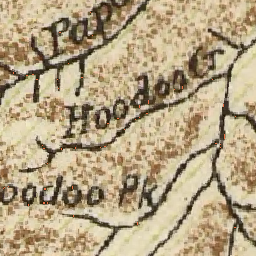 Papo
Hoodoo Cr
oodoo Pk